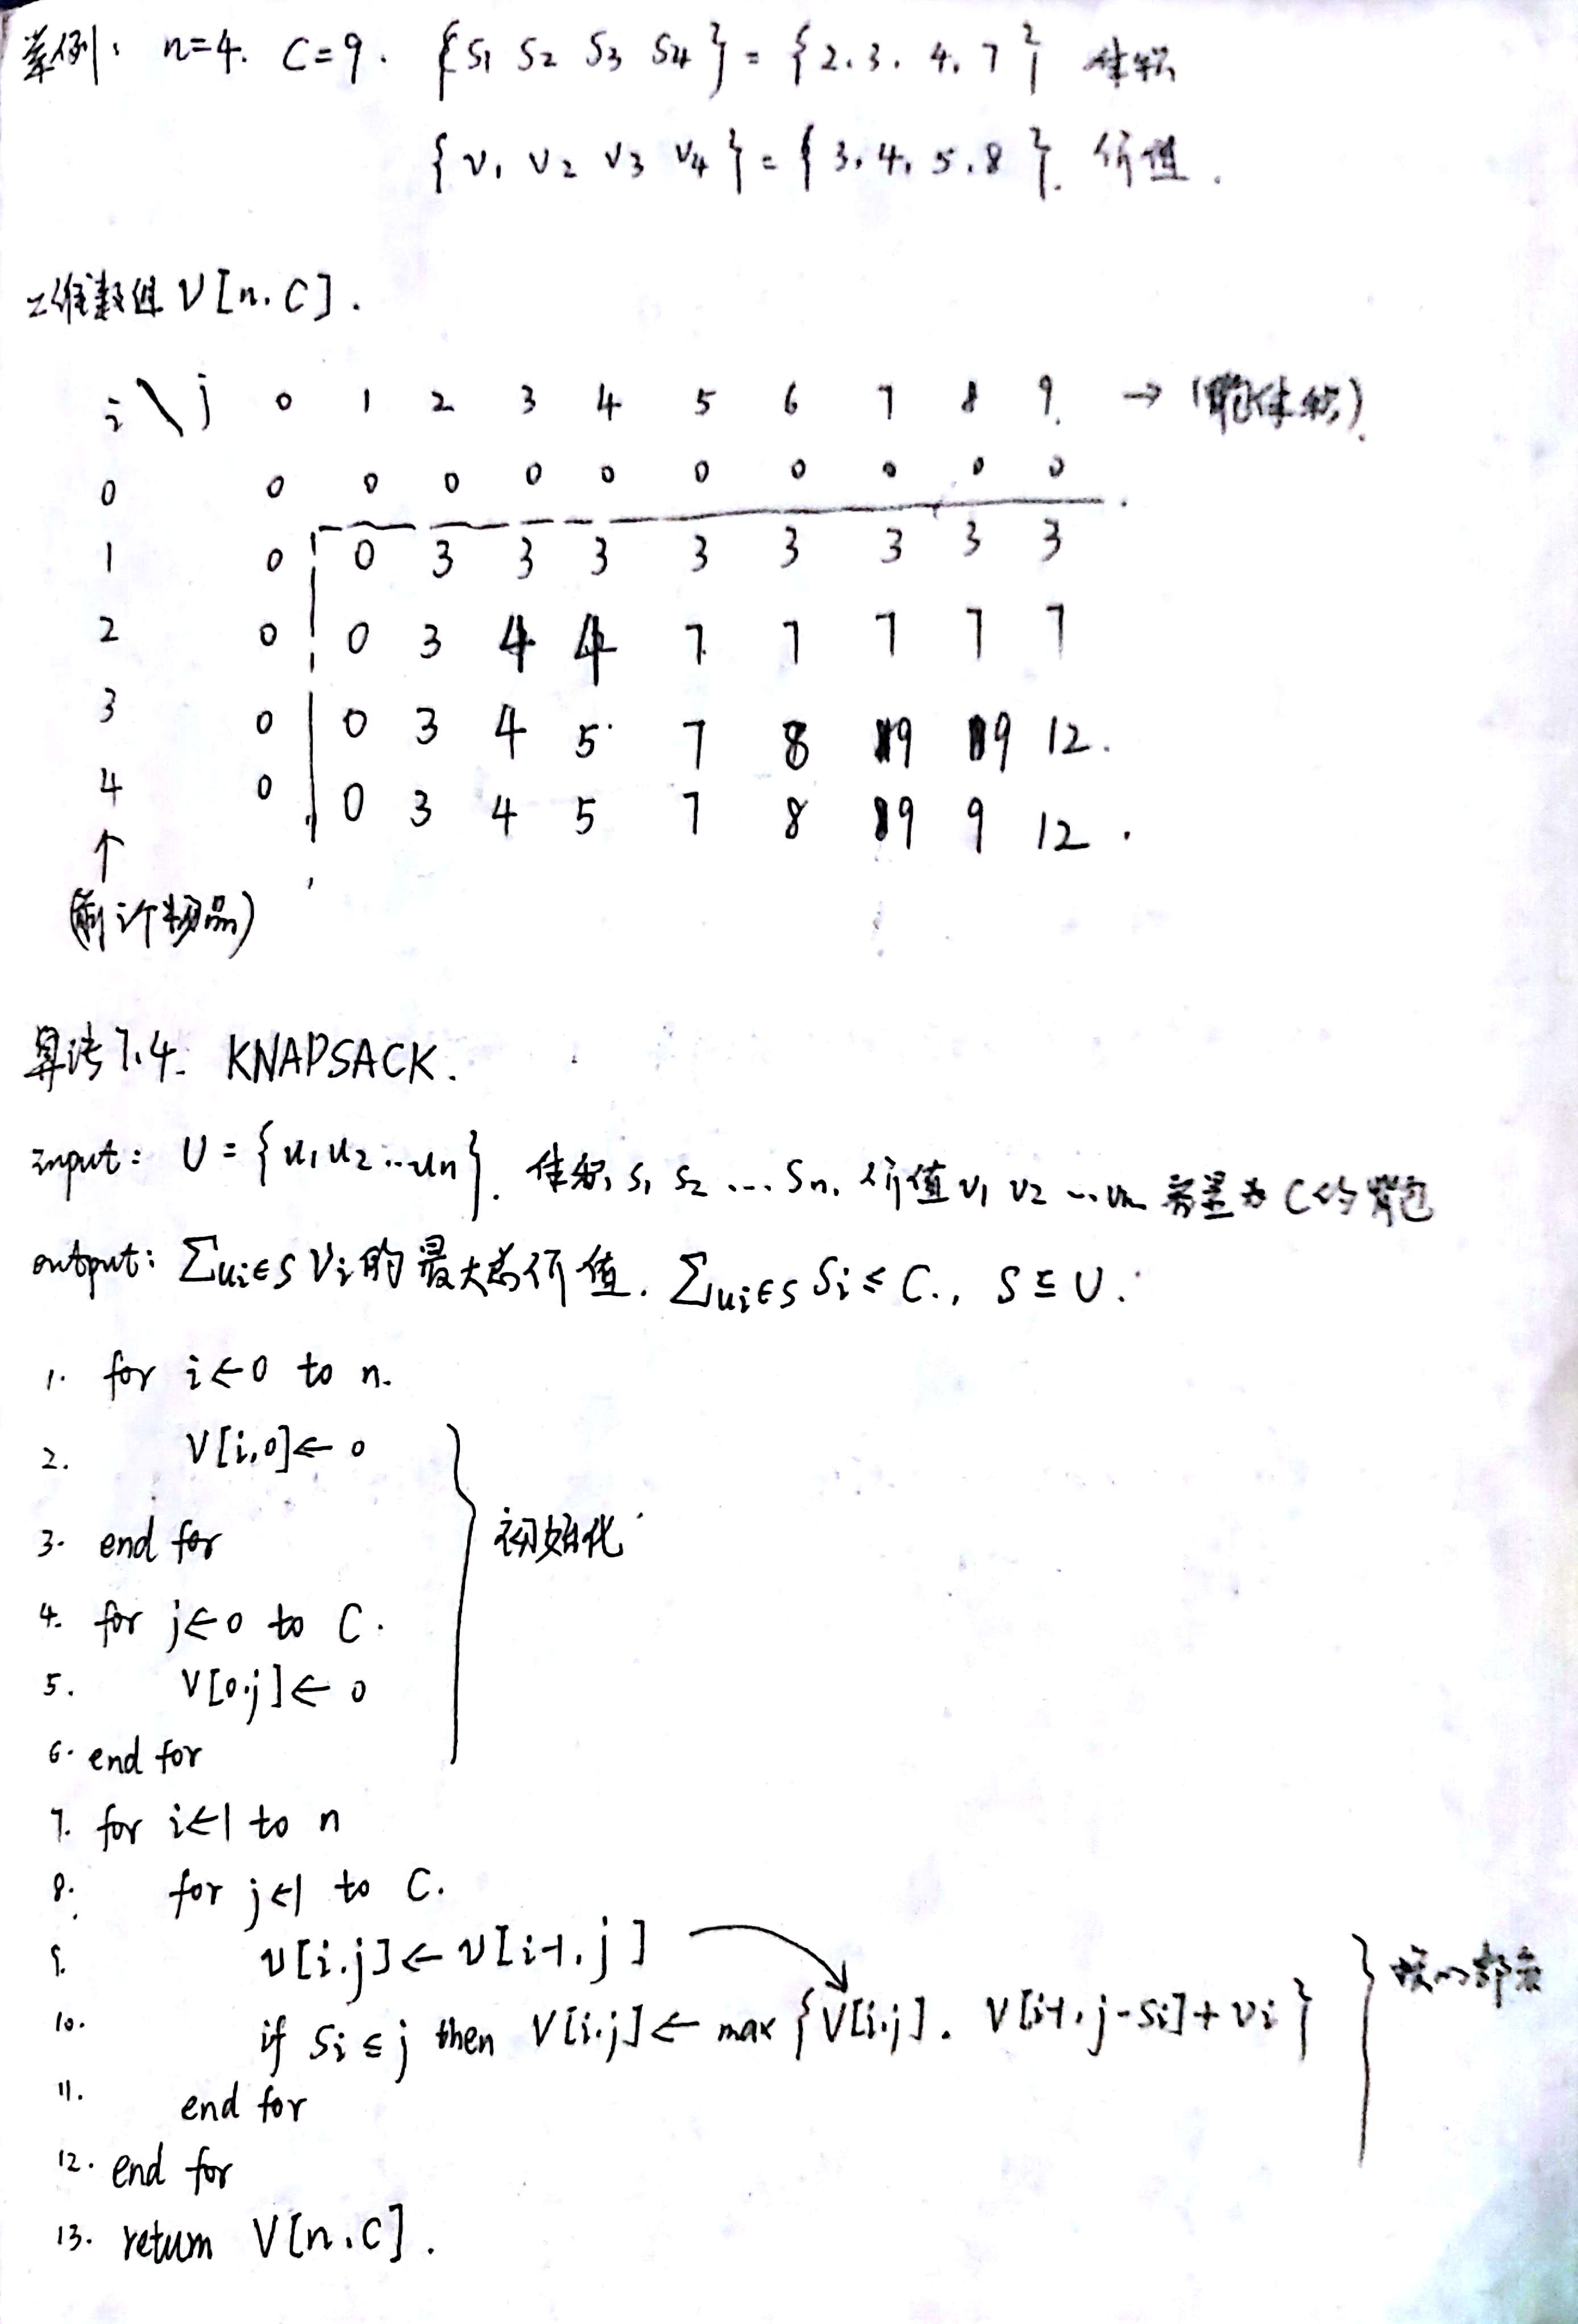 举例: n=4. C=9. {S1 S2 S3 S4} = {2.3.4.7} 体积
{v1 v2 v3 v4} = {3.4.5.8}. 价值.
二维数组 V[n.C].
i \ j 0 1 2 3 4 5 6 7 8 9. → (背包体积).
0 0 0 0 0 0 0 0 0 0 0
1 0 0 3 3 3 3 3 3 3 3
2 0 0 3 4 4 7 7 7 7 7
3 0 0 3 4 5 7 8 9 9 12.
4 0 0 3 4 5 7 8 9 9 12.
↑
(前i个物品)
算法7.4. KNAPSACK.
input: U = {u1 u2 ... un}. 体积 s1 s2 ... sn. 价值 v1 v2 ... vn 容量为C的背包
output: ∑ui∈S Vi的最大总价值. ∑ui∈S Si ≤ C., S ⊆ U.
1. for i←0 to n.
2. V[i,0]← 0
3. end for 初始化
4. for j←0 to C.
5. V[0.j]← 0
6. end for
7. for i←1 to n
8. for j←1 to C.
9. v[i.j]← v[i-1.j]
10. if Si ≤ j then V[i.j]← max {V[i.j]. V[i-1.j-Si]+vi} 核心部分
11. end for
12. end for
13. return V[n.C].